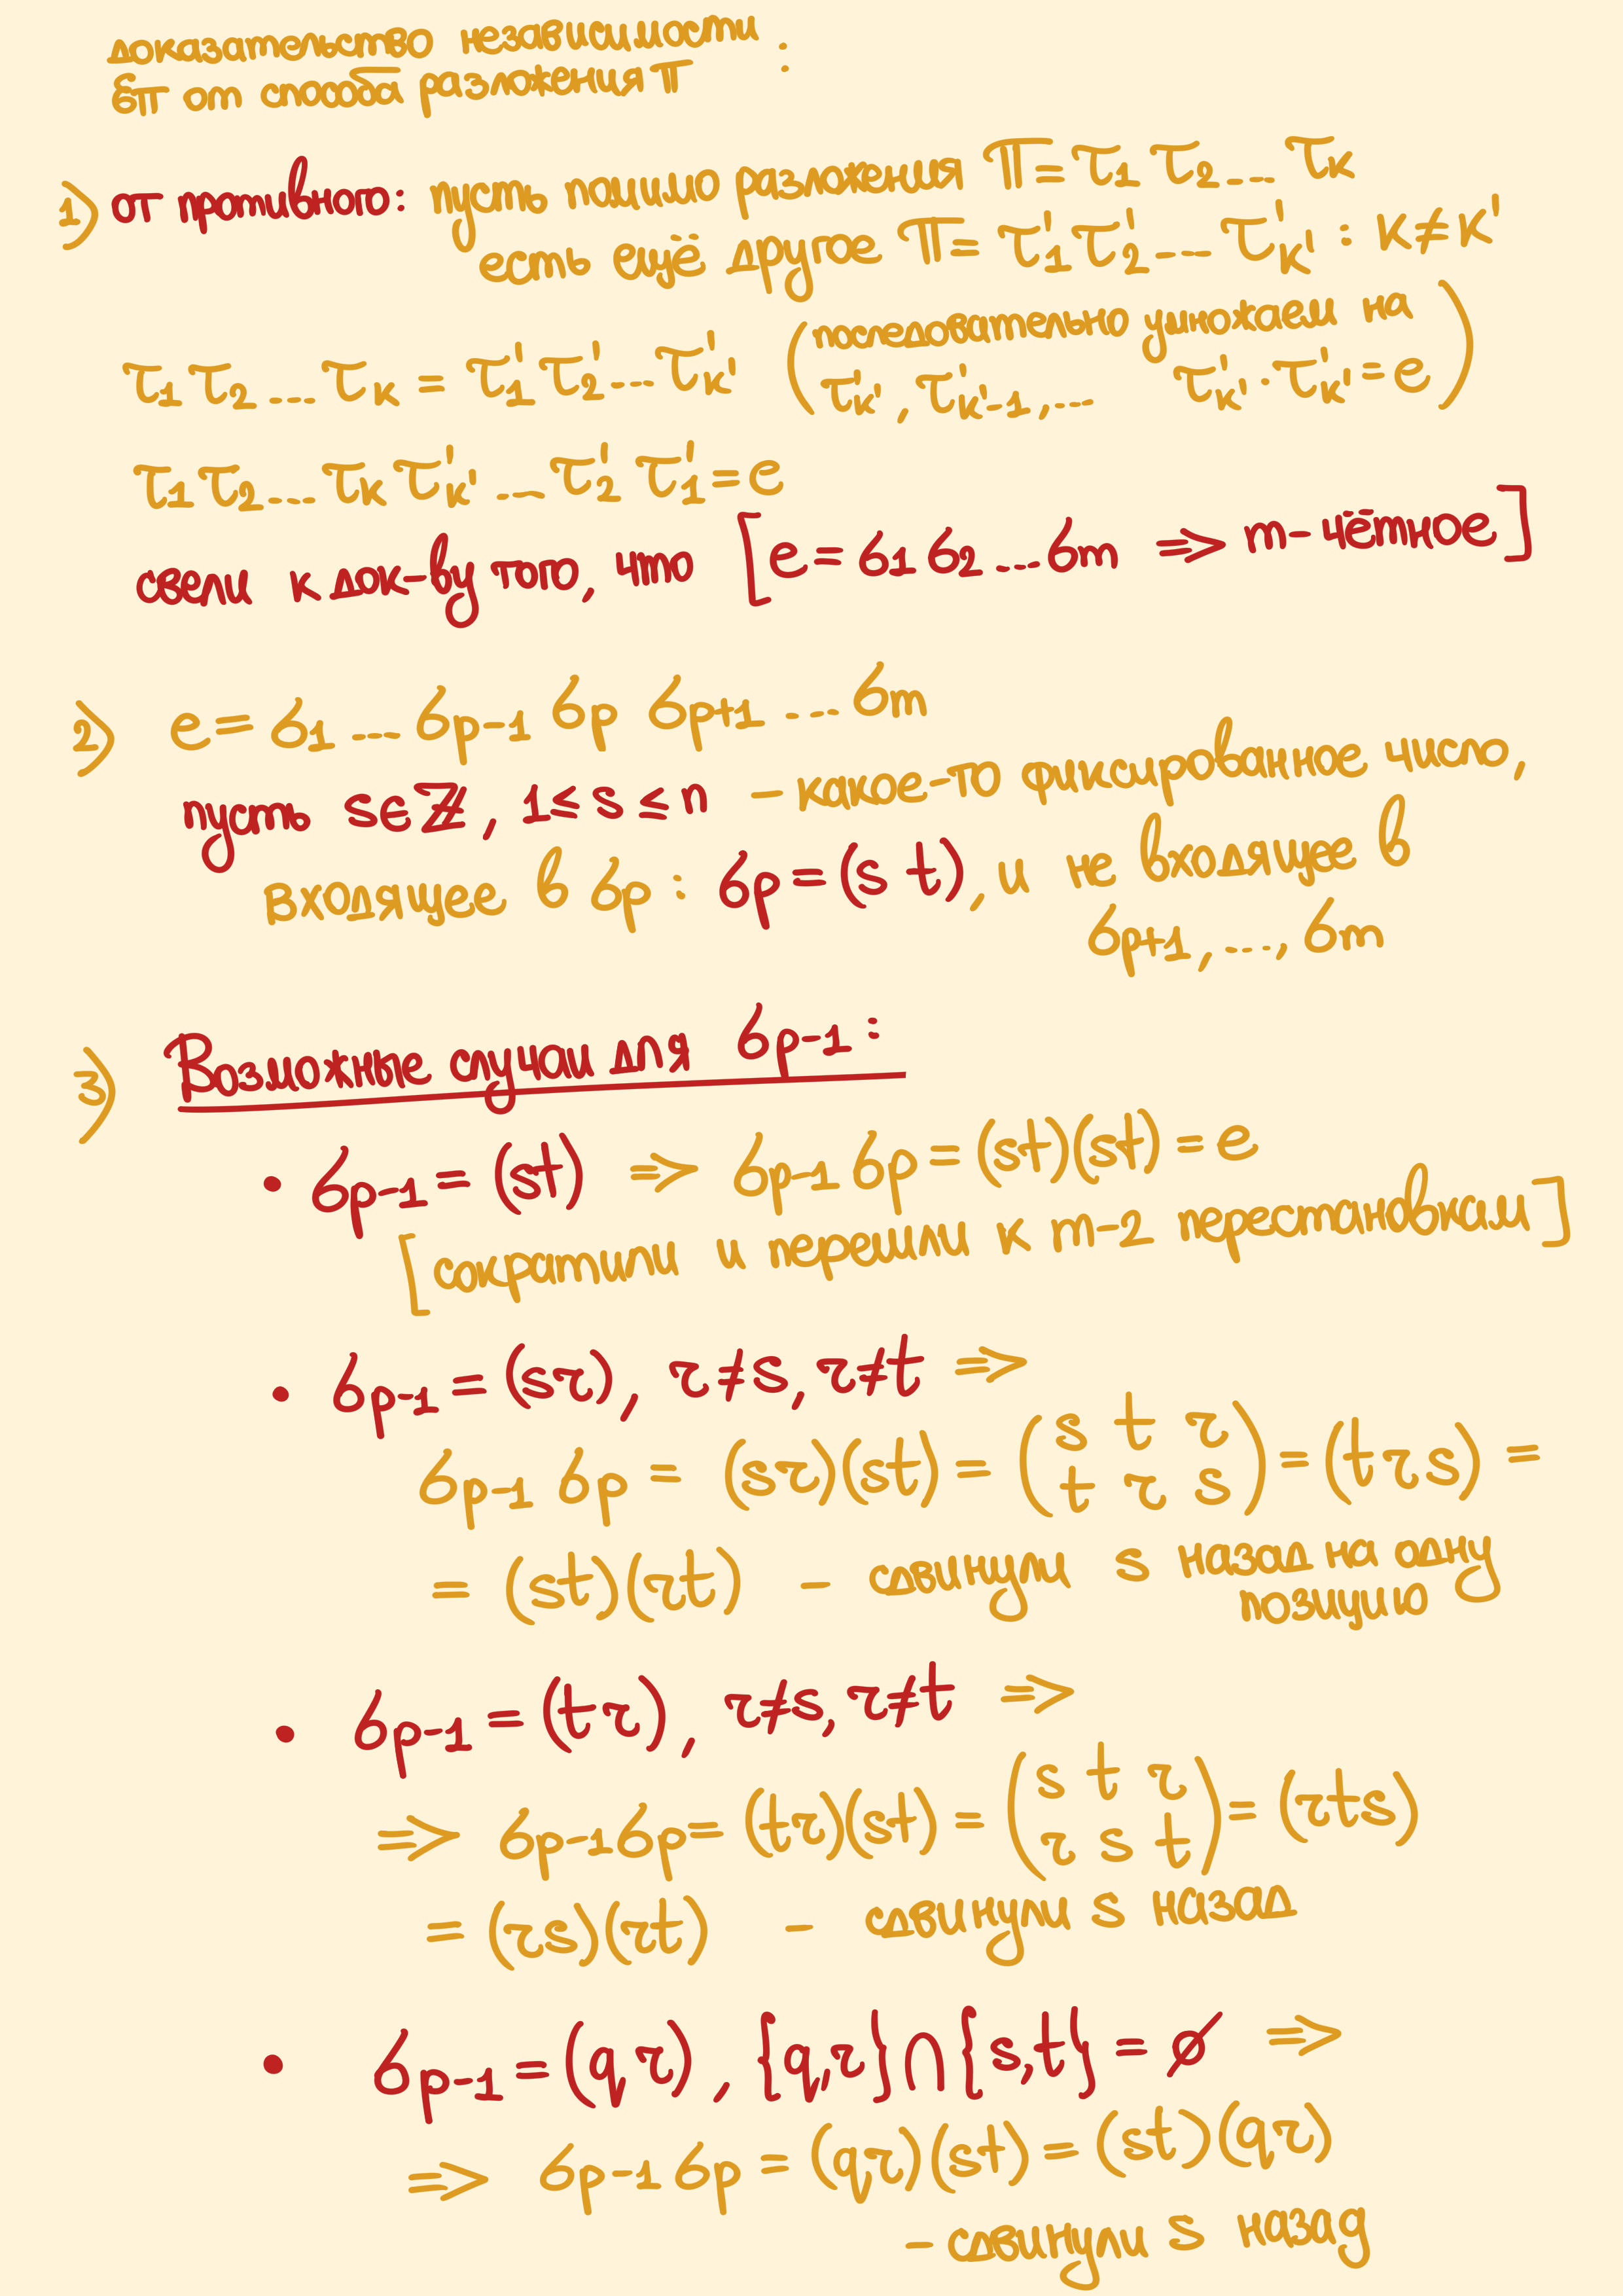 доказательство независимости :
επ от способа разложения π
1) от противного: пусть помимо разложения π = τ₁ τ₂ ... τₖ
есть ещё другое π = τ'₁ τ'₂ ... τ'ₖ' : k ≠ k'
τ₁ τ₂ ... τₖ = τ'₁ τ'₂ ... τ'ₖ' (последовательно умножаем на
τ'ₖ', τ'ₖ'₋₁, ... τ'ₖ' · τ'ₖ' = e)
τ₁ τ₂ ... τₖ τ'ₖ' ... τ'₂ τ'₁ = e
свели к док-ву того, что [e = σ₁ σ₂ ... σₘ ⇒ m - чётное]
2) e = σ₁ ... σₚ₋₁ σₚ σₚ₊₁ ... σₘ
пусть s ∈ ℤ, 1 ≤ s ≤ n - какое-то фиксированное число,
входящее в σₚ : σₚ = (s t), и не входящее в
σₚ₊₁, ..., σₘ
3) Возможные случаи для σₚ₋₁ :
• σₚ₋₁ = (st) ⇒ σₚ₋₁ σₚ = (st)(st) = e
[сократили и перешли к m-2 перестановкам]
• σₚ₋₁ = (sr), r ≠ s, r ≠ t ⇒
σₚ₋₁ σₚ = (sr)(st) = (s t r / t r s) = (t r s) =
= (st)(rt) - сдвинули s назад на одну
позицию
• σₚ₋₁ = (tr), r ≠ s, r ≠ t ⇒
⇒ σₚ₋₁ σₚ = (tr)(st) = (s t r / r s t) = (rts)
= (rs)(rt) - сдвинули s назад
• σₚ₋₁ = (qr), {q,r} ∩ {s,t} = ∅ ⇒
⇒ σₚ₋₁ σₚ = (qr)(st) = (st)(qr)
- сдвинули s назад